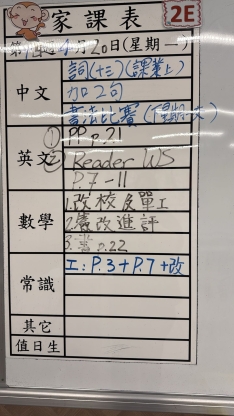 家課表 2E
第 週 4月20日(星期一)
中文
詞(十三)(課業上)
加2句
書法比賽(下星期一交)
英文
① PP p.21
② Reader WS
P.7-11
數學
1. 改校及單工
2. 舊改進評
3. 書 p.22
常識
工: P.3 + P.7 + 改
其它
值日生